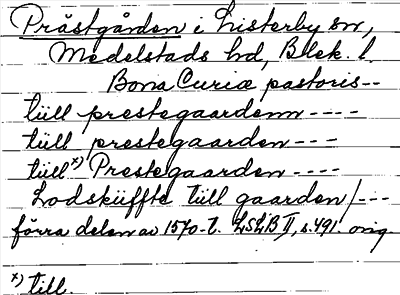 Prästgården i Listerby sn,
Medelstads hd, Blek. l.
Bona Curiæ pastoris--
tüll prestegaardenn----
tüll prestegaarden---
tüll x) Prestegaarden----
Lodsküffte tüll gaarden/---
förra delen av 1570-t. LSLB II, s. 491. orig.
x) till.